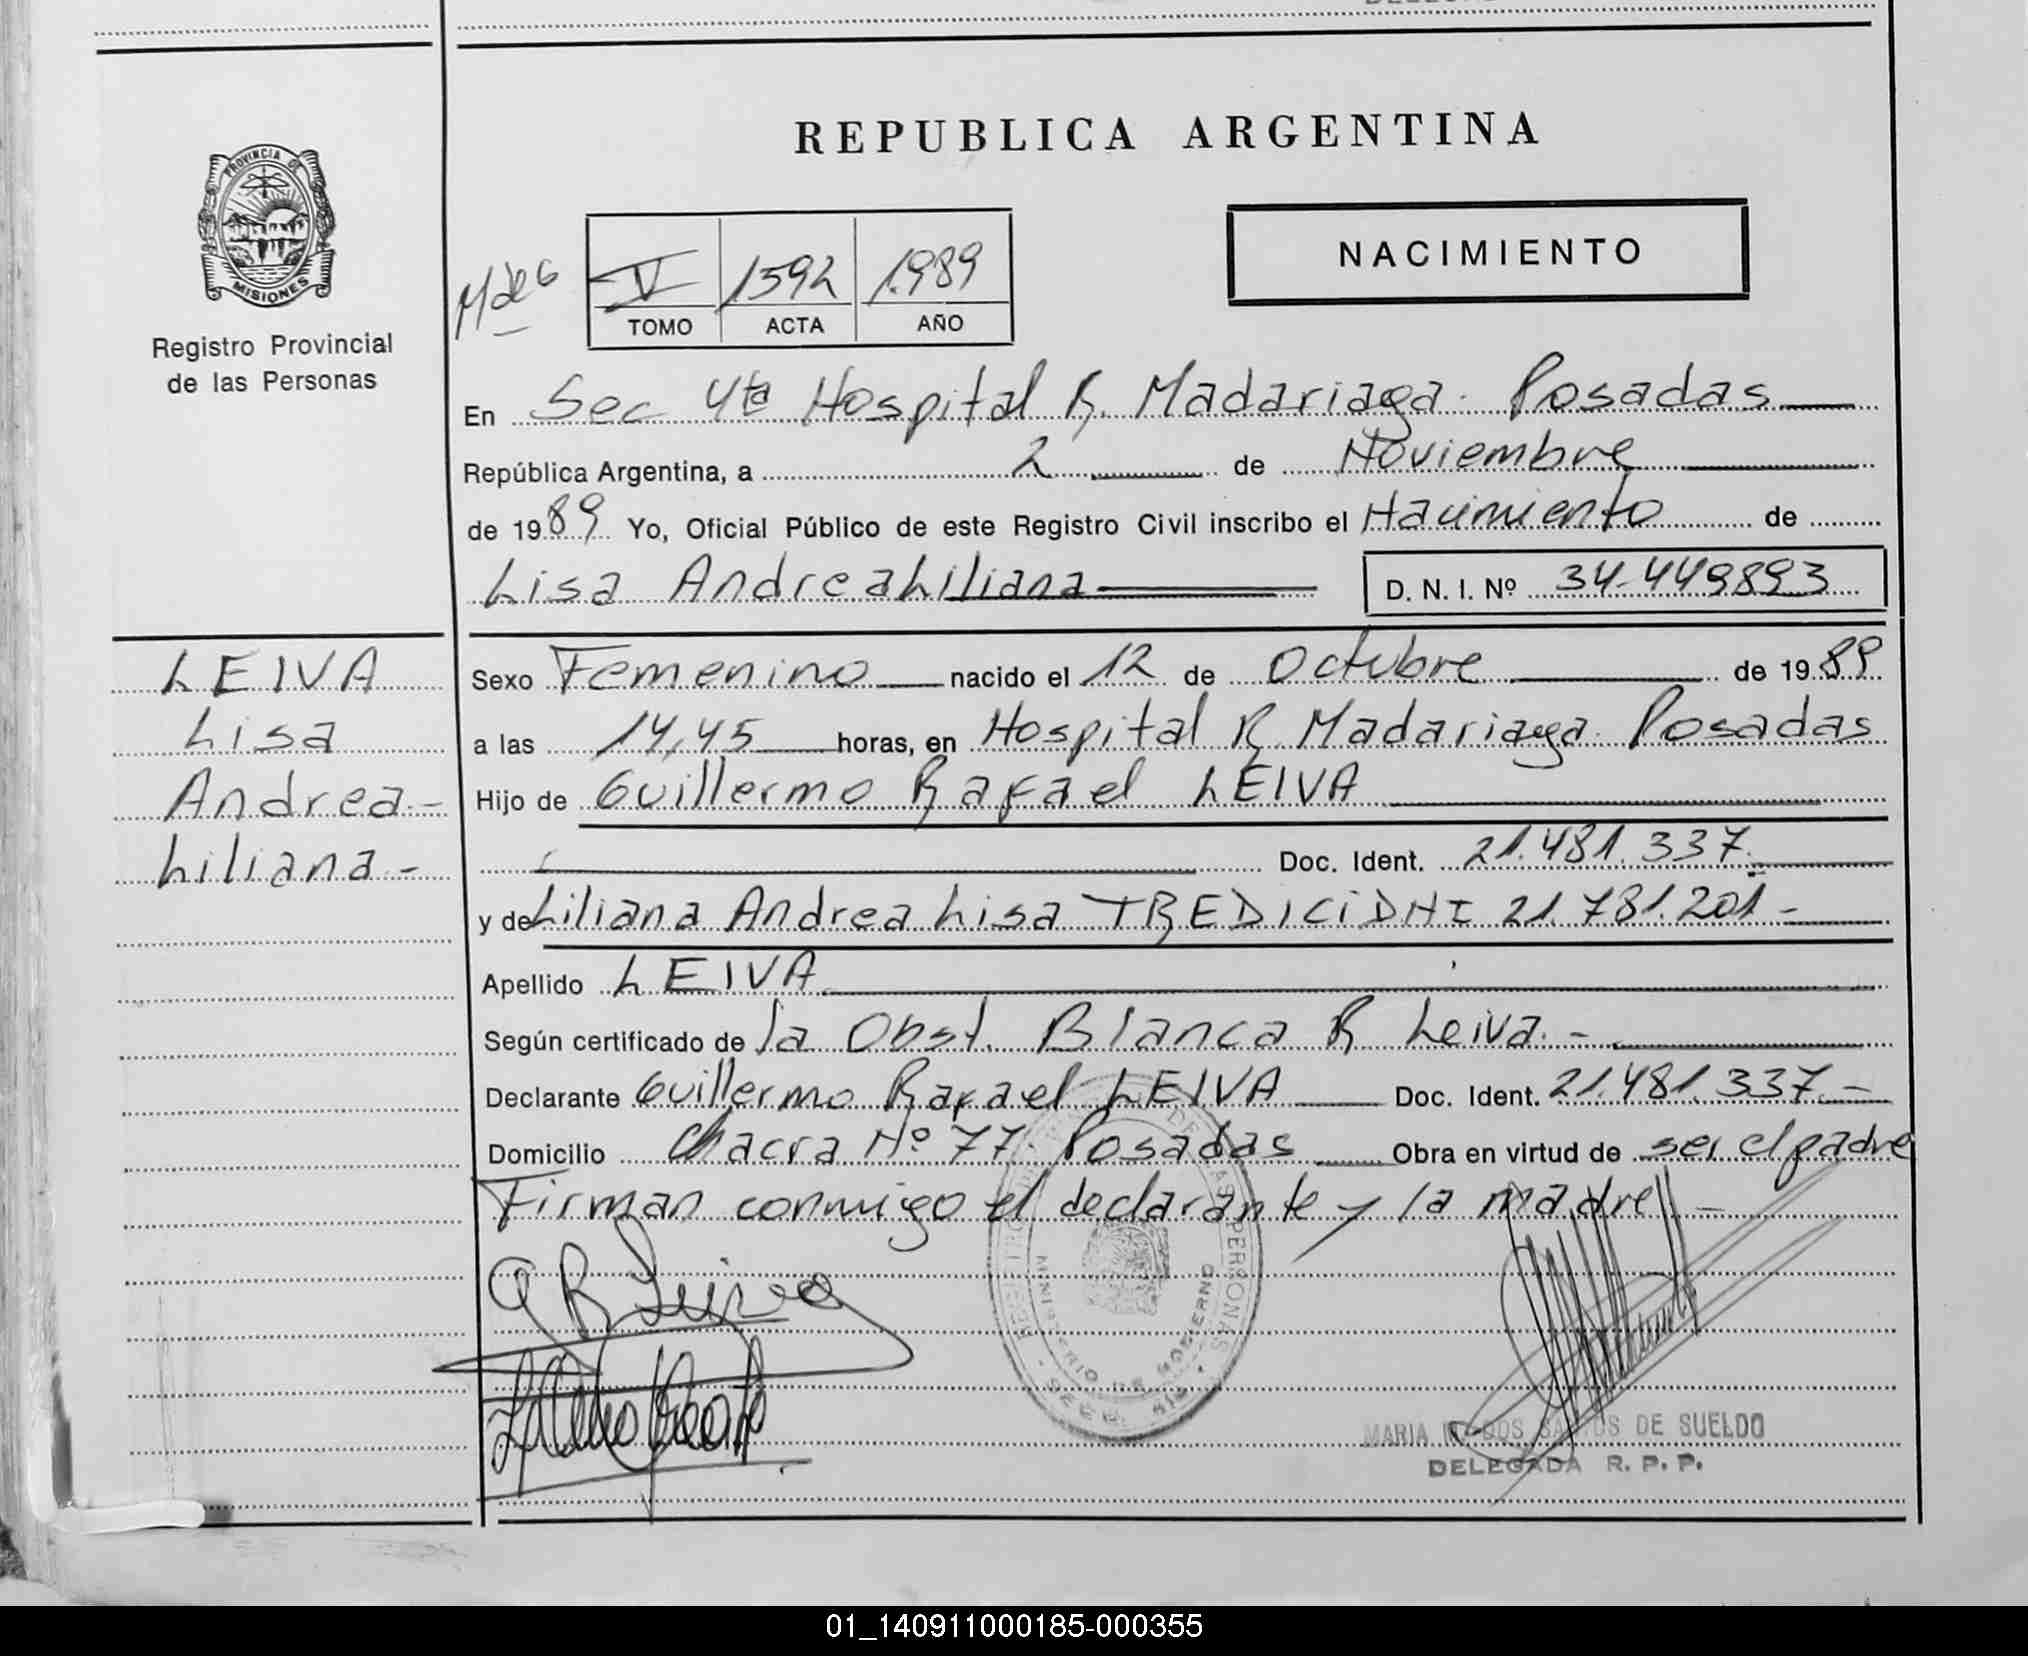 REPUBLICA ARGENTINA
PROVINCIA DE
MISIONES
Registro Provincial
de las Personas
NACIMIENTO
V 1592 1.989
TOMO ACTA AÑO
En Sec 4ta Hospital R. Madariaga. Posadas
República Argentina, a 2 de Noviembre
de 1989 Yo, Oficial Público de este Registro Civil inscribo el Nacimiento de
Lisa Andrea Liliana D. N. I. Nº 34.449893
LEIVA
Lisa
Andrea-
Liliana-
Sexo Femenino nacido el 12 de Octubre de 1989
a las 14,45 horas, en Hospital R Madariaga. Posadas
Hijo de Guillermo Rafael LEIVA
Doc. Ident. 21.481.337.
y de Liliana Andrea Lisa TREDICI DNI 21.781.201-
Apellido LEIVA
Según certificado de la Obst. Blanca R Leiva.-
Declarante Guillermo Rafael LEIVA Doc. Ident. 21.481.337.-
Domicilio Chacra Nº 77. Posadas Obra en virtud de ser el padre
Firman conmigo el declarante y la madre
G R Leiva
DE LAS PERSONAS
MINISTERIO DE GOBIERNO
MARIA DOS SANTOS DE SUELDO
DELEGADA R. P. P.
01_140911000185-000355